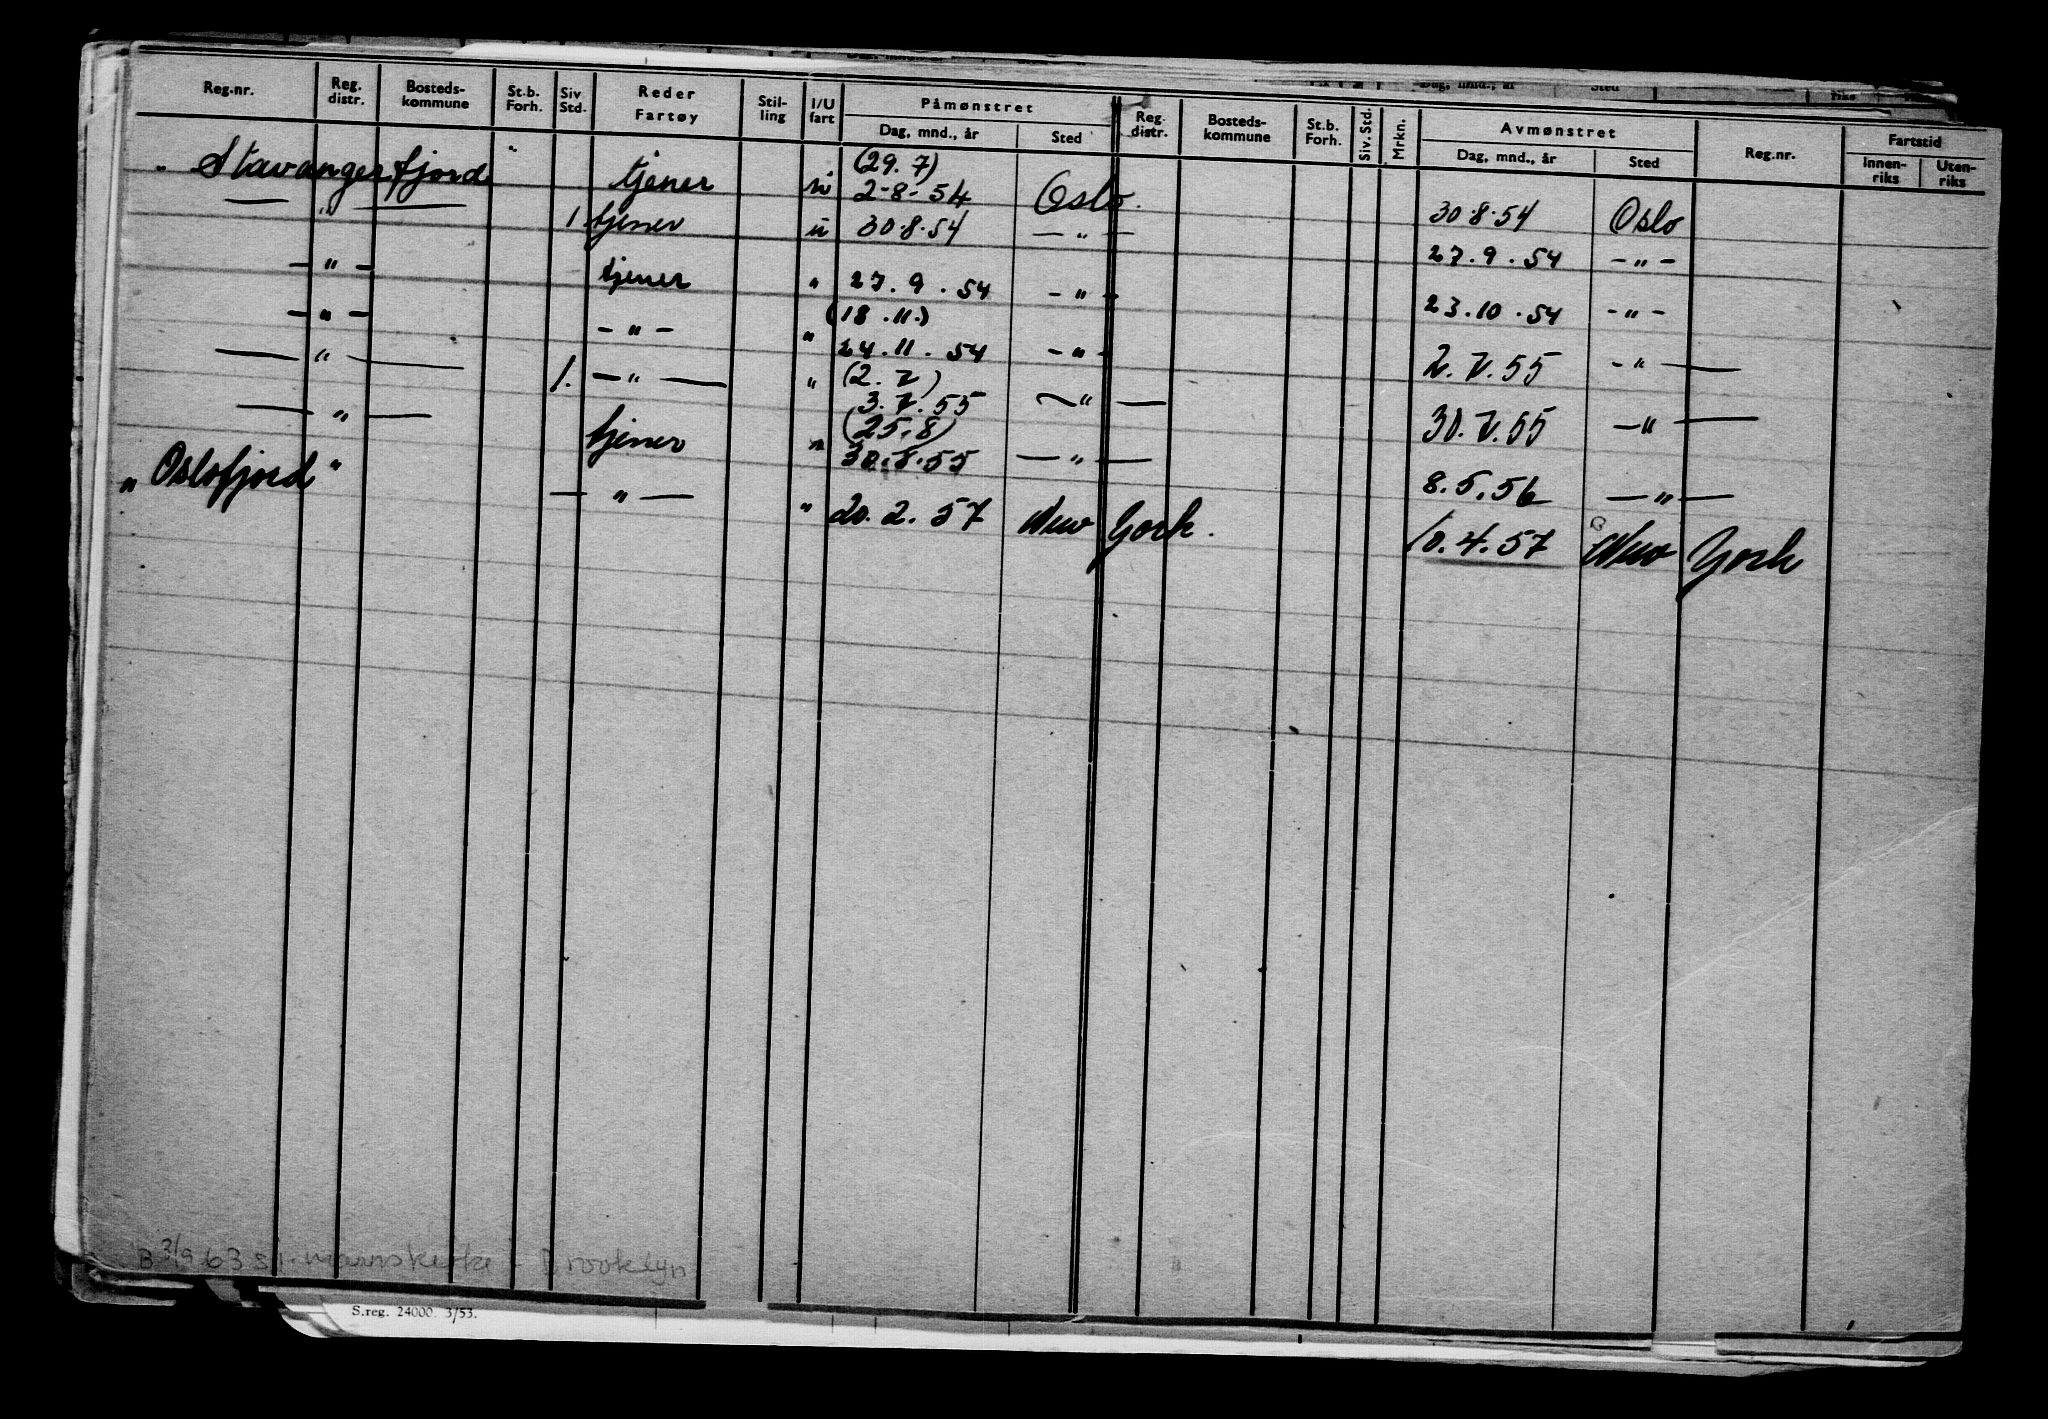 Reg.nr. Reg. distr. Bosteds-kommune St.b. Forh. Siv. Std. Reder Fartøy Stil-ling I/U fart Påmønstret Dag, mnd., år Sted Reg. distr. Bosteds-kommune St.b. Forh. Siv. Std. Mrkn. Avmønstret Dag, mnd., år Sted Reg.nr. Fartstid Innen-riks Uten-riks
"Stavangerfjord" tjener u (29.7) 2-8-54 Oslo. 30.8.54 Oslo
— " — 1 tjener u 30.8.54 — " — 27.9.54 — " —
— " — tjener " 27.9.54 — " — 23.10.54 — " —
— " — — " — " (18.11.) 24.11.54 — " — 2.7.55 — " —
— " — 1. — " — " (2.7) 3.7.55 — " — 30.7.55 — " —
— " — tjener " (25.8) 30.8.55 — " — 8.5.56 — " —
"Oslofjord" — " — " 20.2.57 New York. 10.4.57 New York
B 3/9 63 Brooklyn
S.reg. 24000. 3/53.